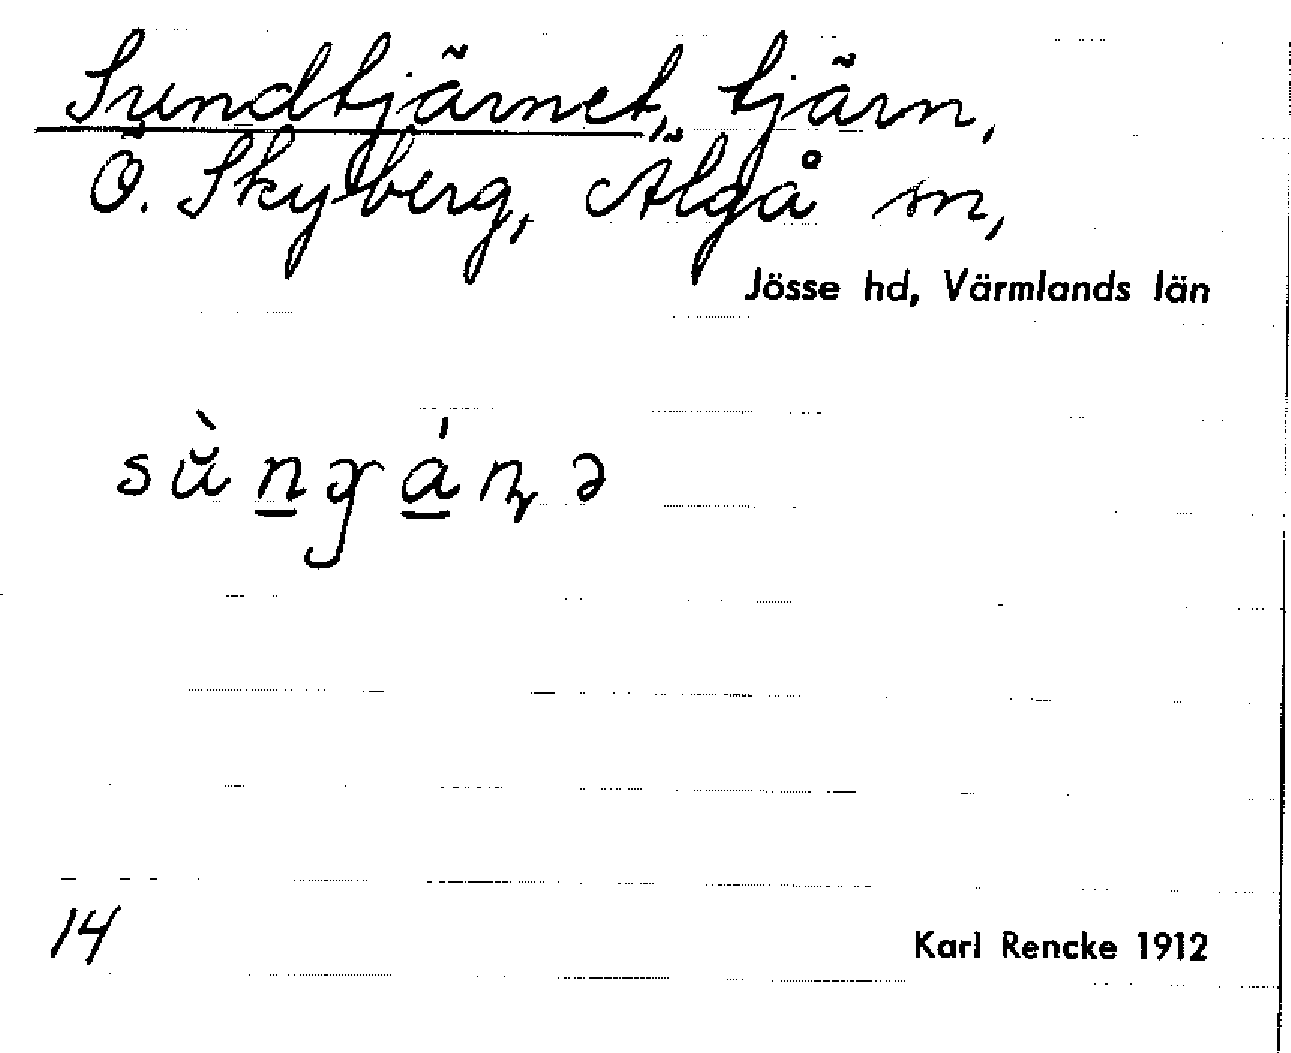 Sundtjärnet, tjärn,
Ö. Skyberg, Älgå sn,
Jösse hd, Värmlands län
14
Karl Rencke 1912